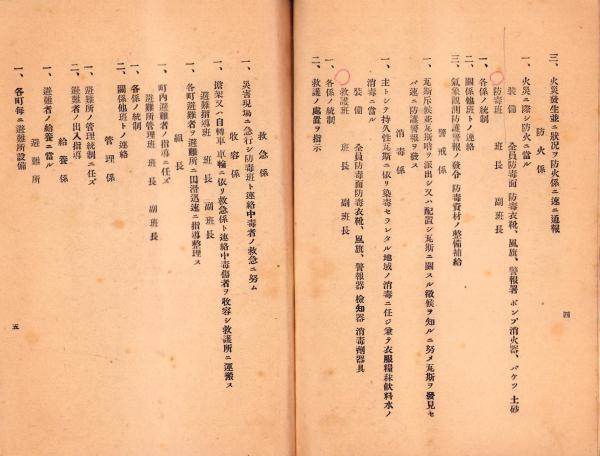 三、火災發生並ニ狀況ヲ防火係ニ速ニ通報
防火係
一、火災ニ際シ防火ニ當ル
裝備 全員防毒面 防毒衣靴、風旗、警報器 ポンプ消火器、バケツ 土砂
防毒班 班長 副班長
一、各係ノ統制
二、關係他班トノ連絡
三、氣象觀測防護警報ノ發令 防毒資材ノ整備補給
警戒係
一、瓦斯斥候並瓦斯哨ヲ派出シ又ハ配置シ瓦斯ニ關スル徵候ヲ知ルニ努メ瓦斯ヲ發見セ
バ速ニ防護警報ヲ發ス
消毒係
一、主トシテ持久性瓦斯ニ依リ染毒セラレタル地域ノ消毒ニ任ジ兼テ衣服糧秣飲料水ノ
消毒ニ當ル
裝備 全員防毒面防毒衣靴、風旗、警報器 檢知器 消毒劑器具
救護班 班長 副班長
一、各係ノ統制
二、救護ノ處置ヲ指示
四
救急係
一、災害現場ニ急行シ防毒班ト連絡中毒者ノ救急ニ努ム
收容係
一、擔架又ハ自轉車、車輛ニ依リ救急係ト連絡中毒傷者ヲ收容シ救護所ニ運搬ス
避難指導班 班長 副班長
一、各町避難者ヲ避難所ニ圓滑迅速ニ指導整理ス
組長
一、町內避難者ノ指導ニ任ズ
避難所管理班 班長 副班長
一、各係ノ統制
二、關係他班トノ連絡
管理係
一、避難所ノ管理統制ニ任ズ
二、避難者ノ出入指導
給養係
一、避難者ノ給養ニ當ル
避難所
一、各町每ニ避難所設備
五